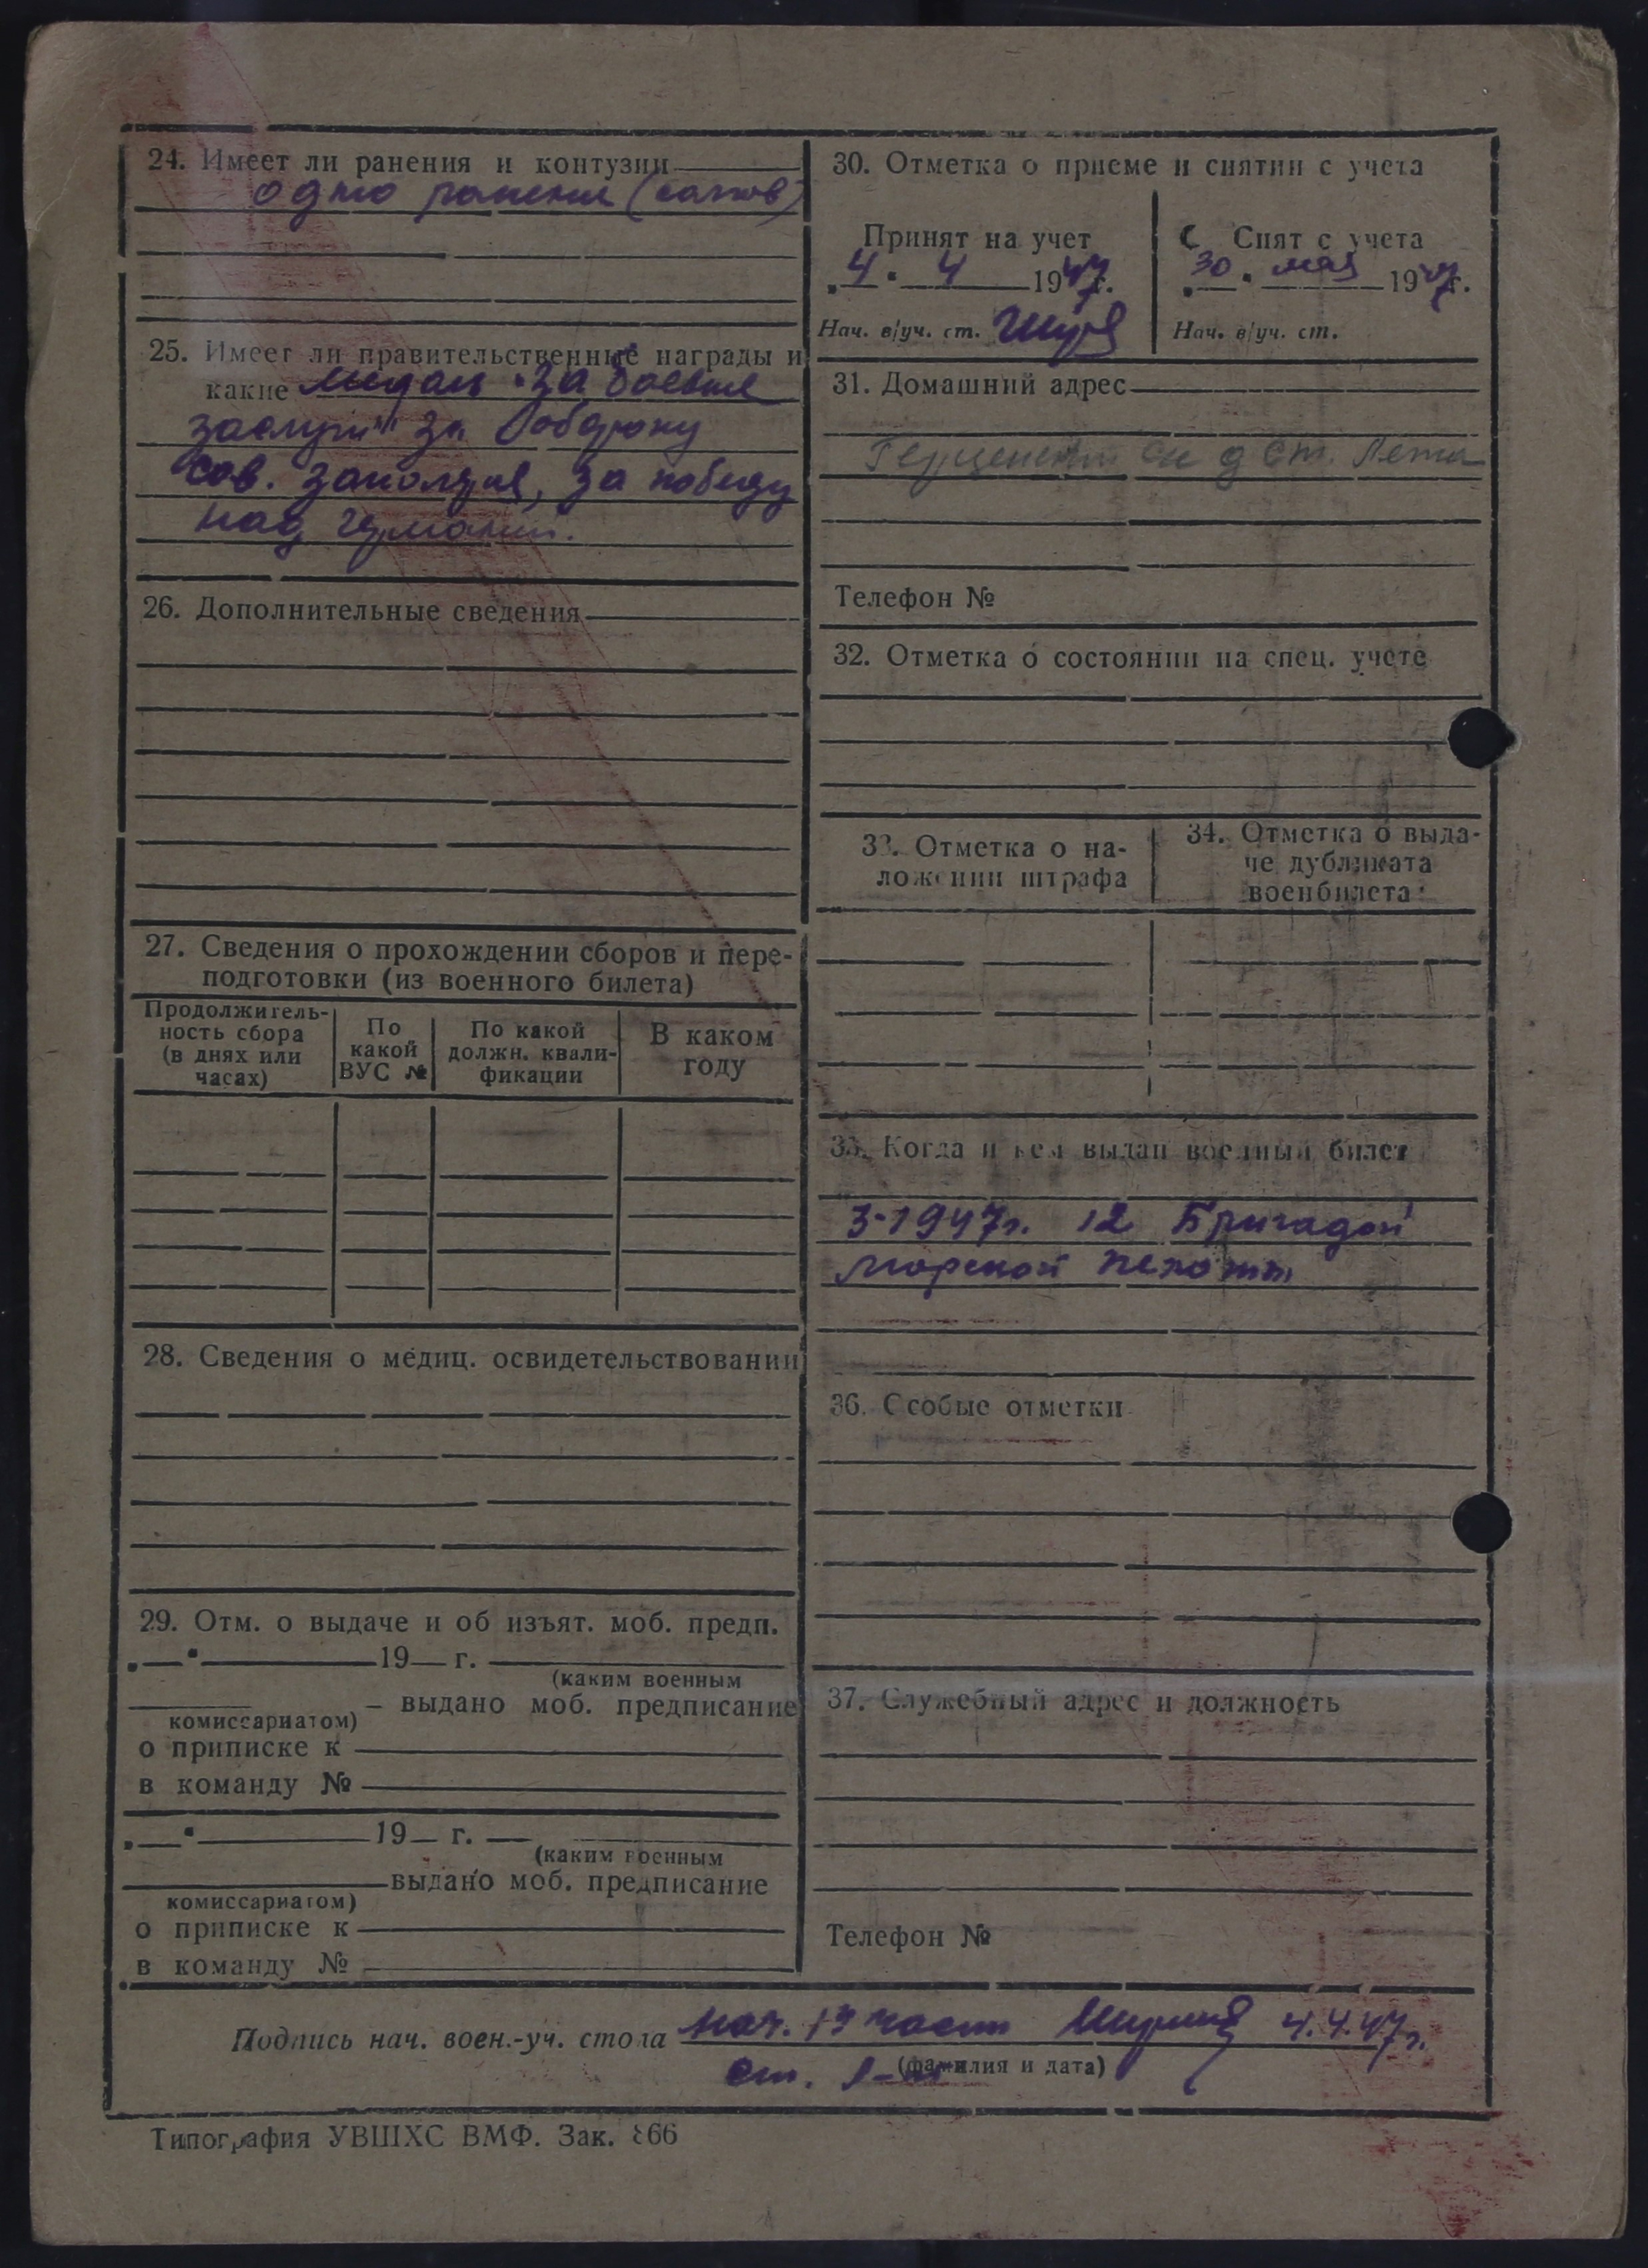 24. Имеет ли ранения и контузии
одно ранение
25. Имеет ли правительственные награды и
какие медаль "За боевые
заслуги" за оборону
Сов. Заполярья, за победу
над Германией.
26. Дополнительные сведения
27. Сведения о прохождении сборов и пере-
подготовки (из военного билета)
Продолжитель-
ность сбора
(в днях или
часах)
По
какой
ВУС №
По какой
должн. квали-
фикации
В каком
году
28. Сведения о медиц. освидетельствовании
29. Отм. о выдаче и об изъят. моб. предп.
19 г.
(каким военным
выдано моб. предписание
комиссариатом)
о приписке к
в команду №
19 г.
(каким военным
выдано моб. предписание
комиссариатом)
о приписке к
в команду №
30. Отметка о приеме и снятии с учета
Принят на учет
4 4 1947г.
Нач. в/уч. ст.
Снят с учета
30 мая 1947г.
Нач. в/уч. ст.
31. Домашний адрес
ст.
Телефон №
32. Отметка о состоянии на спец. учете
33. Отметка о на-
ложении штрафа
34. Отметка о выда-
че дубликата
военбилета
35. Когда и кем выдан военный билет
3-1947г. 12 Бригадой
морской пехоты
36. Особые отметки
37. Служебный адрес и должность
Телефон №
Подпись нач. воен.-уч. стола нач. части 4.4.47г.
(фамилия и дата)
ст.
Типография УВШХС ВМФ. Зак. 866